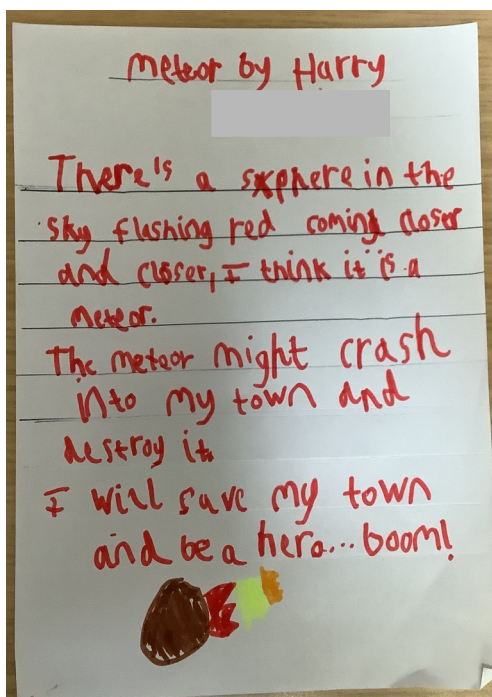 meteor by Harry
There's a sxphere in the
sky flashing red coming closer
and closer, I think it is a
meteor.
The meteor might crash
into my town and
destroy it.
I will save my town
and be a hero... boom!